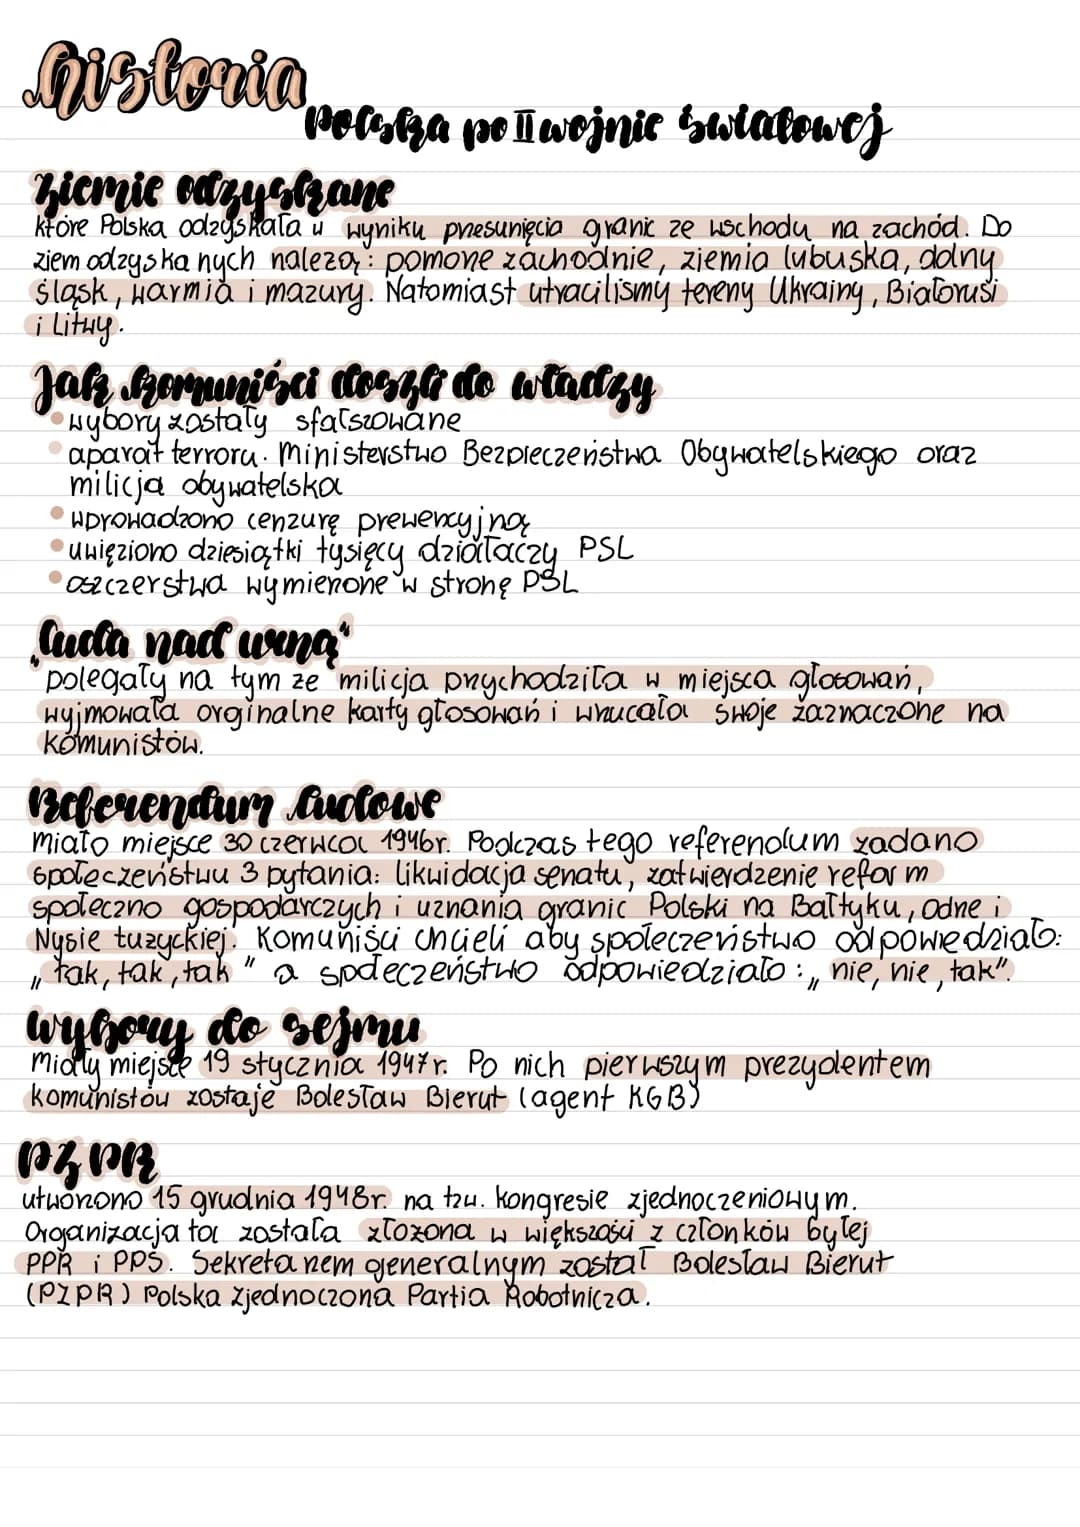 historia
Polska po II wojnie światowej
Ziemie odzyskane
które Polska odzyskała w wyniku przesunięcia granic ze wschodu na zachód. Do
ziem odzyskanych należą: pomorze zachodnie, ziemia lubuska, dolny
śląsk, warmia i mazury. Natomiast utraciliśmy tereny Ukrainy, Białorusi
i Litwy.
Jak komuniści doszli do władzy
• wybory zostały sfałszowane
• aparat terroru. Ministerstwo Bezpieczeństwa Obywatelskiego oraz
milicja obywatelska
• wprowadzono cenzurę prewencyjną
• uwięziono dziesiątki tysięcy działaczy PSL
• oszczerstwa wymierone w stronę PSL
„Cuda nad urną"
polegały na tym że milicja przychodziła w miejsca głosowań,
wyjmowała orginalne karty głosowań i wrzucała swoje zaznaczone na
komunistów.
Referendum ludowe
Miało miejsce 30 czerwca 1946r. Podczas tego referendum zadano
społeczeństwu 3 pytania: likwidacja senatu, zatwierdzenie reform
społeczno gospodarczych i uznania granic Polski na Bałtyku, Odrze i
Nysie łużyckiej. Komuniści chcieli aby społeczeństwo odpowiedziało:
„tak, tak, tak" a społeczeństwo odpowiedziało: „nie, nie, tak".
Wybory do sejmu
Miały miejsce 19 stycznia 1947r. Po nich pierwszym prezydentem
komunistów zostaje Bolesław Bierut (agent KGB)
PZPR
utworzono 15 grudnia 1948r. na tzw. kongresie zjednoczeniowym.
Organizacja ta została złożona w większości z członków byłej
PPR i PPS. Sekretarzem generalnym został Bolesław Bierut
(PZPR) Polska Zjednoczona Partia Robotnicza.